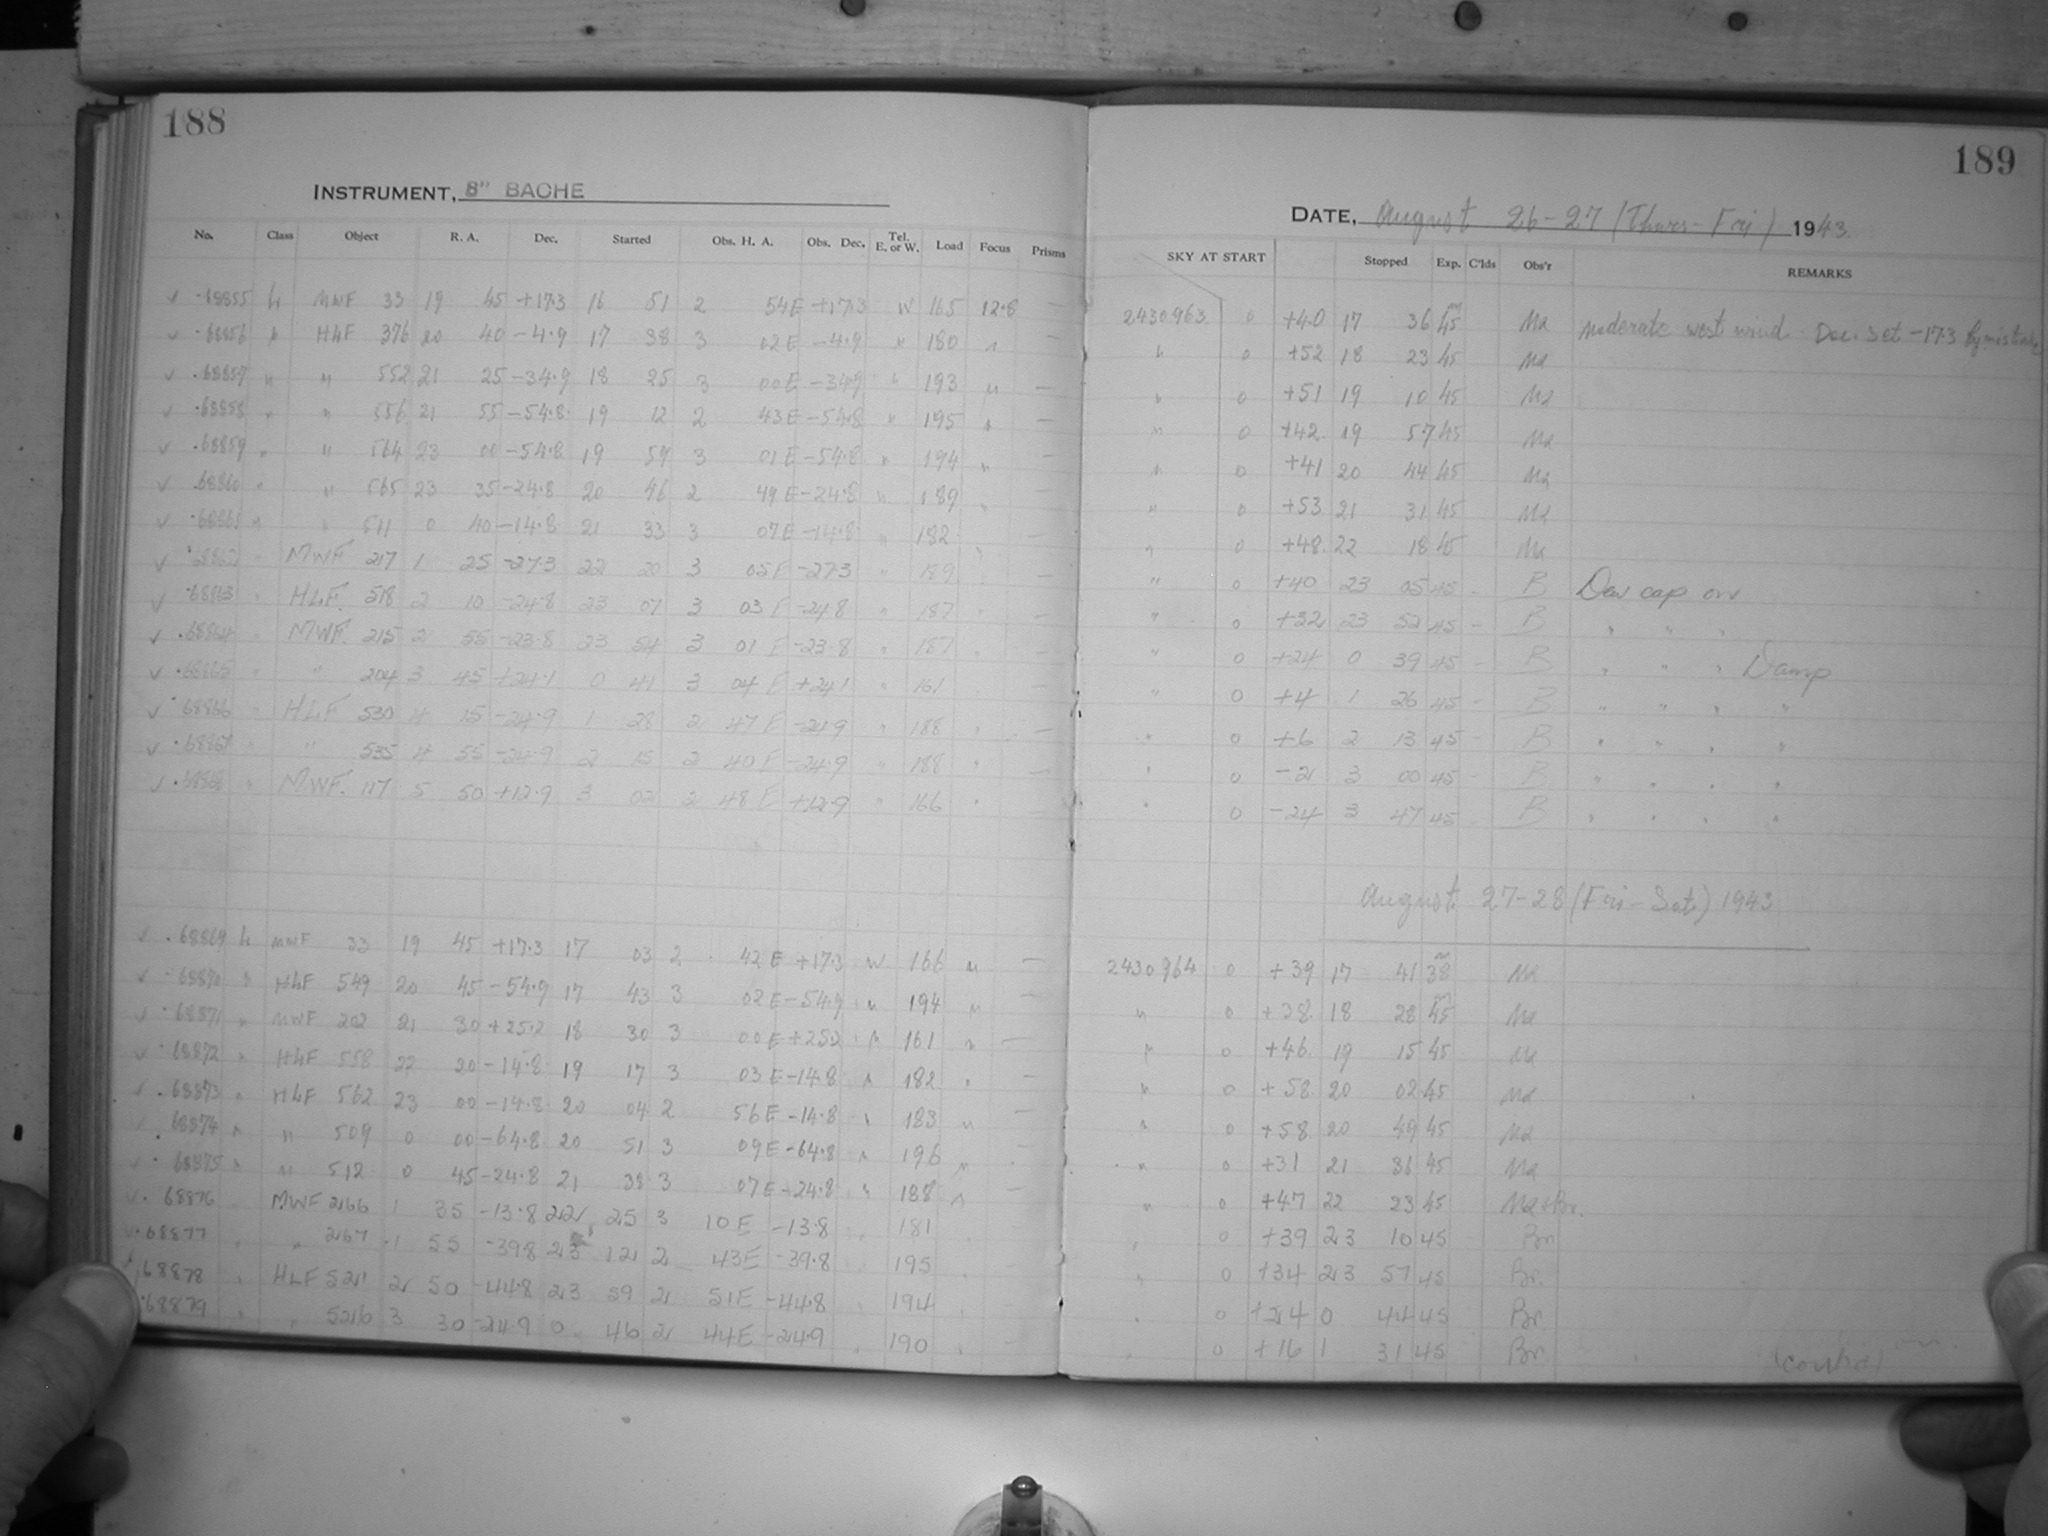 188
INSTRUMENT, 8" BACHE
No. Class Object R. A. Dec. Started Obs. H. A. Obs. Dec. Tel. E. or W. Load Focus Prisms
✓ 68855 L MWF 33 19 45 +17.3 16 51 2 54E +17.3 W 165 12.8 —
✓ 68856 " HLF 376 20 40 -4.9 17 38 3 02E -4.9 " 180 " —
✓ 68857 " " 552 21 25 -34.9 18 25 3 00E -34.9 " 193 " —
✓ 68858 " " 556 21 55 -54.8 19 12 2 43E -54.8 " 195 " —
✓ 68859 " " 564 23 00 -54.8 19 59 3 01E -54.8 " 194 " —
✓ 68860 " " 565 23 35 -24.8 20 46 2 49E -24.8 " 189 " —
✓ 68861 " " 511 0 40 -14.8 21 33 3 07E -14.8 " 182 —
✓ 68862 " MWF 217 1 25 -27.3 22 20 3 05E -27.3 " 189 " —
✓ 68863 " HLF 518 2 10 -24.8 23 07 3 03E -24.8 " 187 " —
✓ 68864 " MWF 215 2 55 -23.8 23 54 3 01E -23.8 " 187 " —
✓ 68865 " " 204 3 45 +24.1 0 41 3 04E +24.1 " 161 —
✓ 68866 " HLF 530 4 15 -24.9 1 28 2 47E -24.9 " 188 " —
✓ 68867 " " 535 4 55 -24.9 2 15 2 40E -24.9 " 188 " —
✓ 68868 " MWF 117 5 50 +12.9 3 02 2 48E +12.9 " 166 " —
✓ 68869 L MWF 33 19 45 +17.3 17 03 2 42E +17.3 W 166 " —
✓ 68870 " HLF 549 20 45 -54.9 17 43 3 02E -54.9 " 194 " —
✓ 68871 " MWF 202 21 30 +25.2 18 30 3 00E +25.2 " 161 " —
✓ 68872 " HLF 558 22 20 -14.8 19 17 3 03E -14.8 " 182 " —
✓ 68873 " HLF 562 23 00 -14.8 20 04 2 56E -14.8 " 183 " —
✓ 68874 " " 509 0 00 -64.8 20 51 3 09E -64.8 " 196 " —
✓ 68875 " " 512 0 45 -24.8 21 38 3 07E -24.8 " 188 " —
✓ 68876 MWF 266 1 35 -13.8 22 25 3 10E -13.8 181 —
✓ 68877 " " 267 1 55 -39.8 23 12 2 43E -39.8 195 —
68878 " HLF 521 2 50 -44.8 23 59 2 51E -44.8 194 —
68879 " " 526 3 30 -24.9 0 46 2 44E -24.9 190 —
189
DATE, August 26-27 (Thurs-Fri) 1943
SKY AT START Stopped Exp. C'lds Obs'r REMARKS
2430963 0 +40 17 36 45 Ma Moderate west wind. Dec. set -17.3 by mistake
" 0 +52 18 23 45 Ma
" 0 +51 19 10 45 Ma
" 0 +42 19 57 45 Ma
" 0 +41 20 44 45 Ma
" 0 +53 21 31 45 Ma
" 0 +48 22 18 45 Ma
" 0 +40 23 05 45 - B Dew cap on
" 0 +32 23 52 45 - B " " "
" 0 +24 0 39 45 - B " " " Damp
" 0 +4 1 26 45 - B " " " "
" 0 +6 2 13 45 - B " " " "
" 0 -2 3 00 45 B " " " "
" 0 -24 3 47 45 B " " " "
August 27-28 (Fri-Sat) 1943
2430964 0 +39 17 41 38 Ma
" 0 +38 18 28 45 Ma
" 0 +46 19 15 45 Ma
" 0 +58 20 02 45 Ma
" 0 +58 20 49 45 Ma
" 0 +31 21 36 45 Ma
" 0 +47 22 23 45 Ma+Br.
" 0 +39 23 10 45 Br
" 0 +34 23 57 45 Br.
" 0 +24 0 44 45 Br
" 0 +16 1 31 45 Br